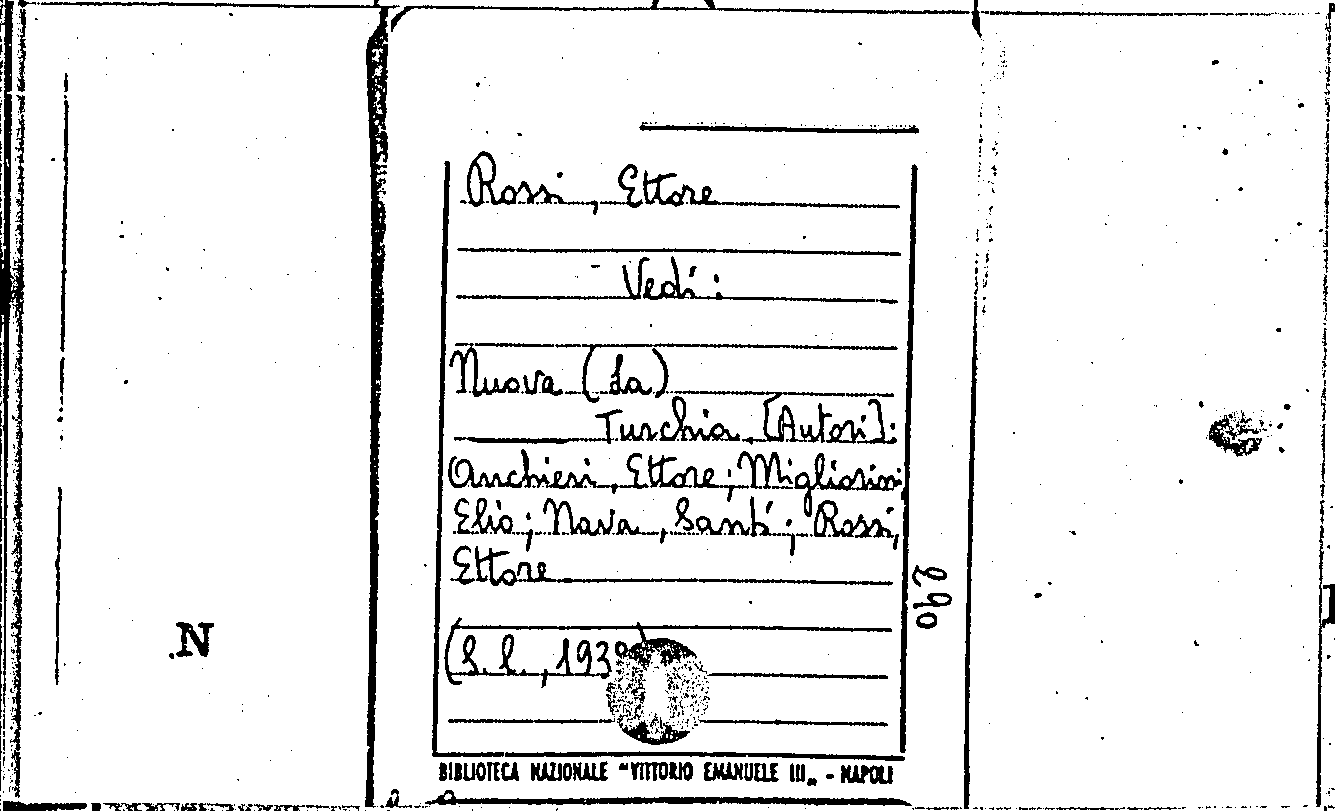 Rossi, Ettore
Vedi:
Nuova (La)
Turchia. [Autori]:
Anchieri, Ettore; Migliorini,
Elio; Nava, Santi; Rossi,
Ettore
(S. l.,
290
.N
BIBLIOTECA NAZIONALE "VITTORIO EMANUELE III„ - NAPOLI